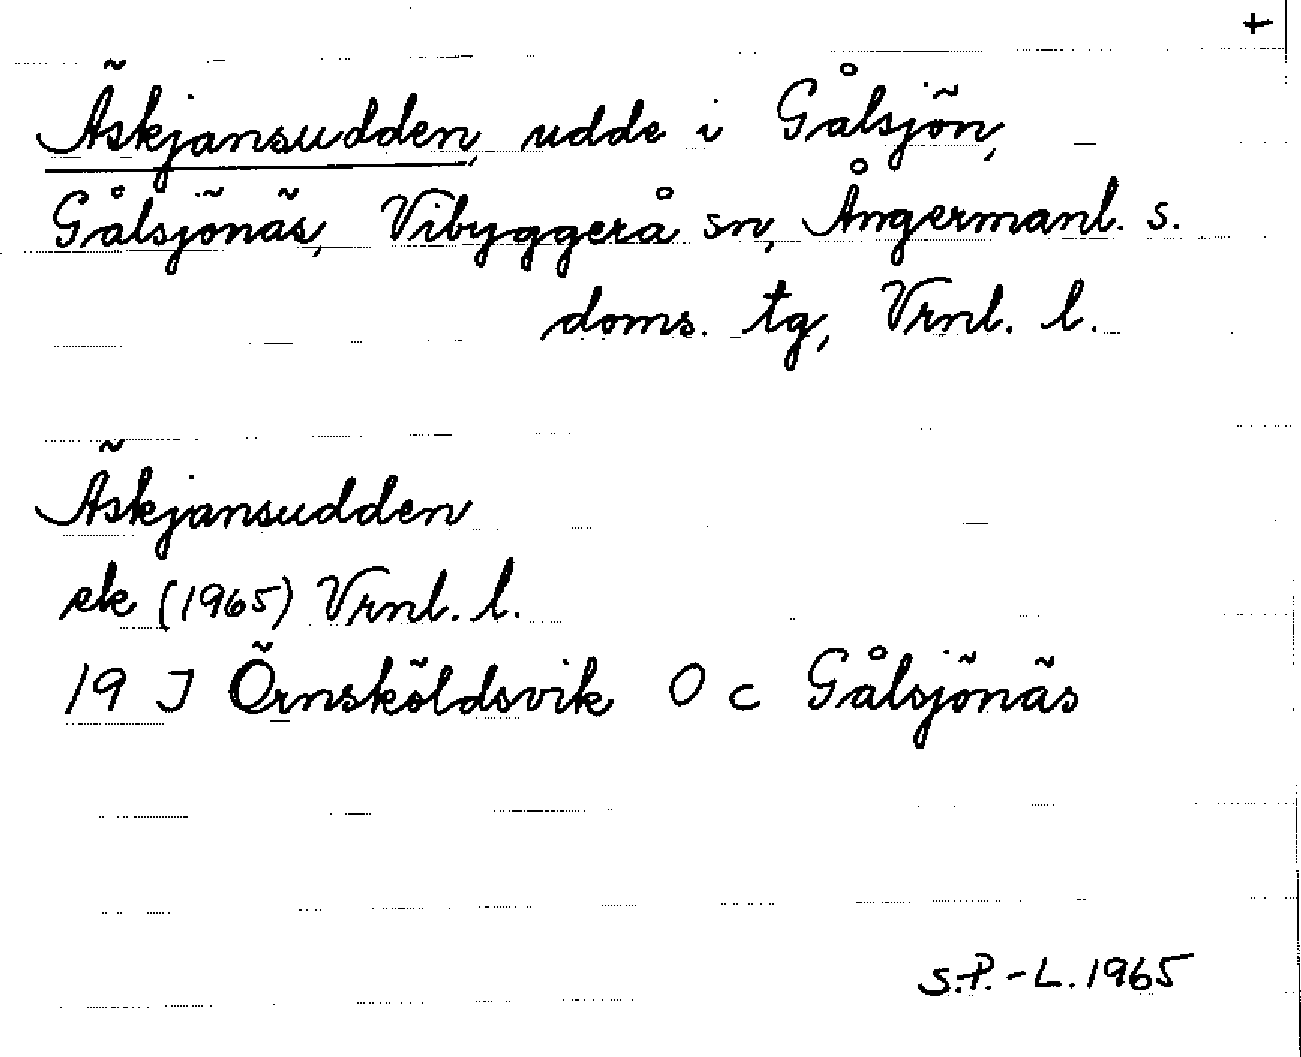 +
Äskjansudden, udde i Gålsjön,
Gålsjönäs, Vibyggerå sn, Ångermanl. s.
doms. tg, Vrnl. l.
Äskjansudden
ek (1965) Vrnl. l.
19 J Örnsköldsvik O c Gålsjönäs
S.P.-L. 1965